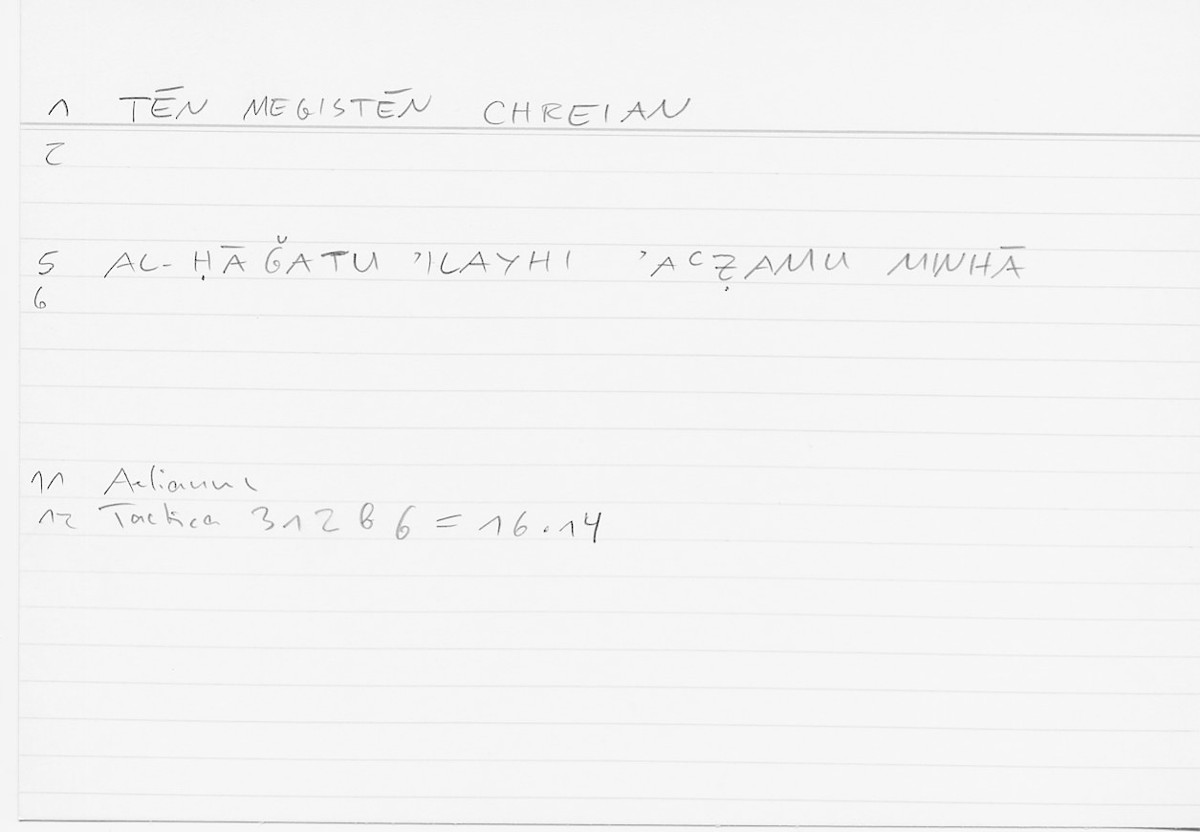 1 TĒN MEGISTĒN CHREIAN
2
5 AL-ḤĀǦATU ʾILAYHI ʾAʿẒAMU MINHĀ
6
11 Aelianus
12 Tactica 312 b 6 = 16.14